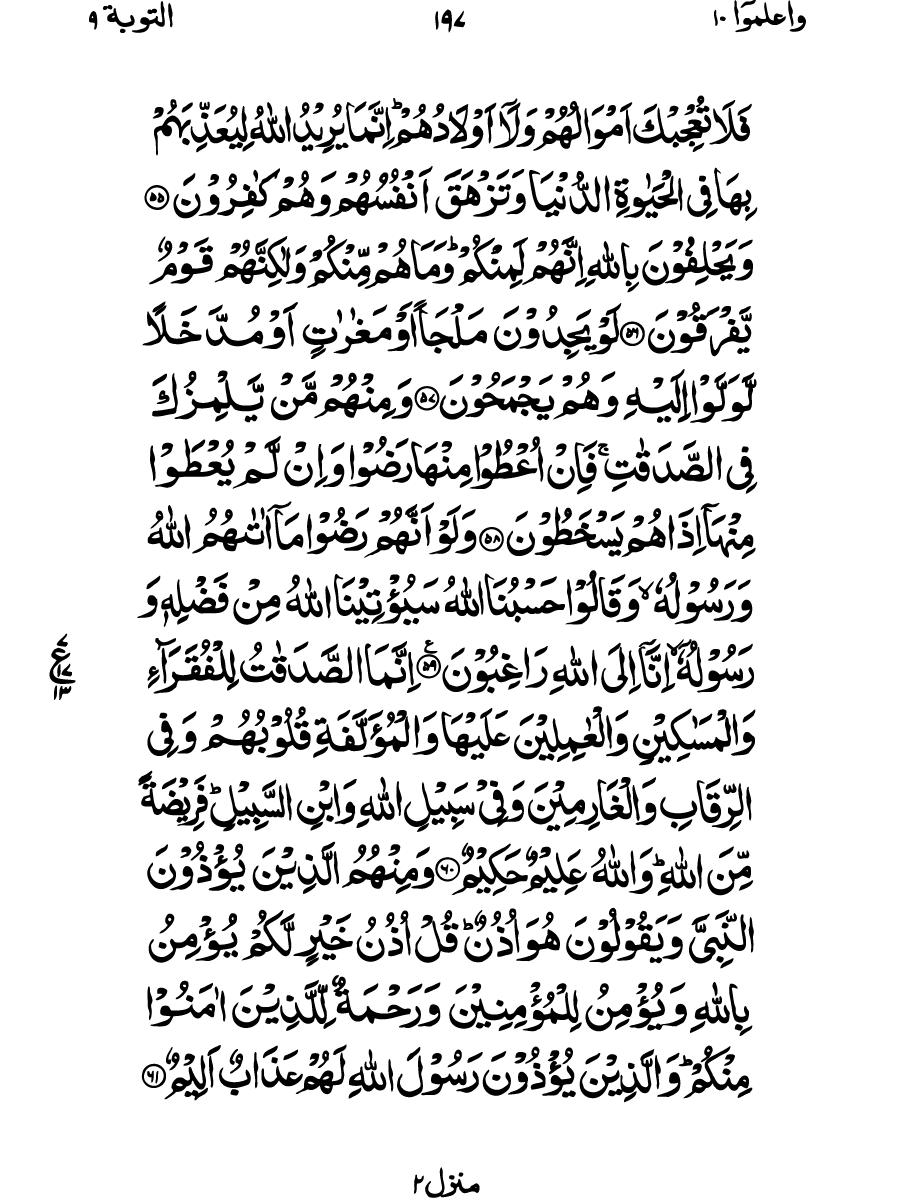 واعلموٓا ١٠ ١٩٧ التوبة ٩
فَلَا تُعْجِبْكَ اَمْوَالُهُمْ وَلَاۤ اَوْلَادُهُمْ ؕ اِنَّمَا يُرِيْدُ اللّٰهُ لِيُعَذِّبَهُمْ
بِهَا فِى الْحَيٰوةِ الدُّنْيَا وَتَزْهَقَ اَنْفُسُهُمْ وَهُمْ كٰفِرُوْنَ ﴿۵۵﴾
وَيَحْلِفُوْنَ بِاللّٰهِ اِنَّهُمْ لَمِنْكُمْ ؕ وَمَا هُمْ مِّنْكُمْ وَلٰكِنَّهُمْ قَوْمٌ
يَّفْرَقُوْنَ ﴿۵۶﴾ لَوْ يَجِدُوْنَ مَلْجَاً اَوْ مَغٰرٰتٍ اَوْ مُدَّخَلًا
لَّوَلَّوْا اِلَيْهِ وَهُمْ يَجْمَحُوْنَ ﴿۵۷﴾ وَمِنْهُمْ مَّنْ يَّلْمِزُكَ
فِى الصَّدَقٰتِ ۚ فَاِنْ اُعْطُوْا مِنْهَا رَضُوْا وَاِنْ لَّمْ يُعْطَوْا
مِنْهَاۤ اِذَا هُمْ يَسْخَطُوْنَ ﴿۵۸﴾ وَلَوْ اَنَّهُمْ رَضُوْا مَاۤ اٰتٰٮهُمُ اللّٰهُ
وَرَسُوْلُهٗ ۙ وَقَالُوْا حَسْبُنَا اللّٰهُ سَيُؤْتِيْنَا اللّٰهُ مِنْ فَضْلِهٖ وَ
رَسُوْلُهٗۤ ۙ اِنَّاۤ اِلَى اللّٰهِ رَاغِبُوْنَ ﴿۵۹﴾ ع اِنَّمَا الصَّدَقٰتُ لِلْفُقَرَآءِ
٧ ع ١٧ ١٣
وَالْمَسٰكِيْنِ وَالْعٰمِلِيْنَ عَلَيْهَا وَالْمُؤَلَّفَةِ قُلُوْبُهُمْ وَفِى
الرِّقَابِ وَالْغَارِمِيْنَ وَفِىْ سَبِيْلِ اللّٰهِ وَابْنِ السَّبِيْلِ ؕ فَرِيْضَةً
مِّنَ اللّٰهِ ؕ وَاللّٰهُ عَلِيْمٌ حَكِيْمٌ ﴿۶۰﴾ وَمِنْهُمُ الَّذِيْنَ يُؤْذُوْنَ
النَّبِىَّ وَيَقُوْلُوْنَ هُوَ اُذُنٌ ؕ قُلْ اُذُنُ خَيْرٍ لَّكُمْ يُؤْمِنُ
بِاللّٰهِ وَيُؤْمِنُ لِلْمُؤْمِنِيْنَ وَرَحْمَةٌ لِّلَّذِيْنَ اٰمَنُوْا
مِنْكُمْ ؕ وَالَّذِيْنَ يُؤْذُوْنَ رَسُوْلَ اللّٰهِ لَهُمْ عَذَابٌ اَلِيْمٌ ﴿۶۱﴾
منزل ٢